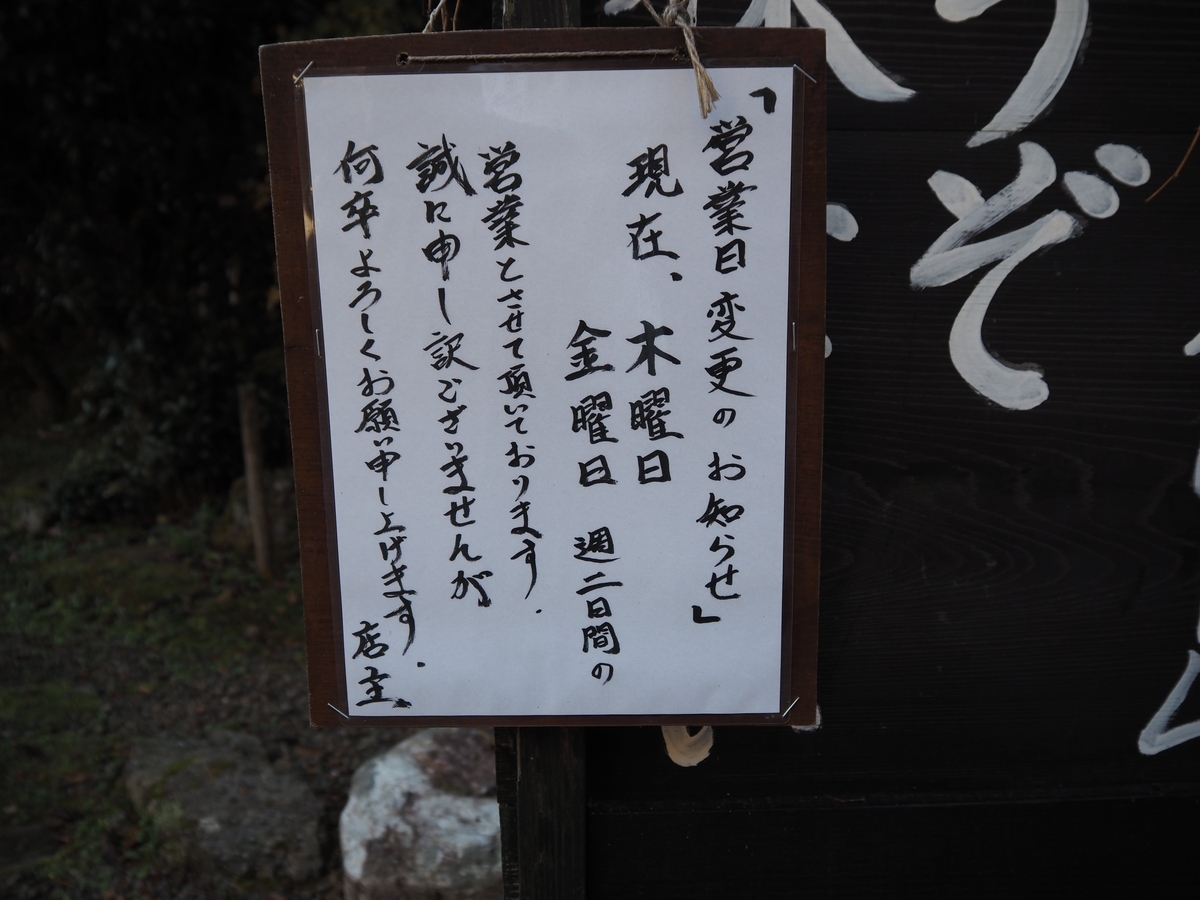 「営業日変更のお知らせ」
現在、木曜日
金曜日 週二日間の
営業とさせて頂いております.
誠に申し訳ございませんが
何卒よろしくお願い申し上げます.
店主
うぞ